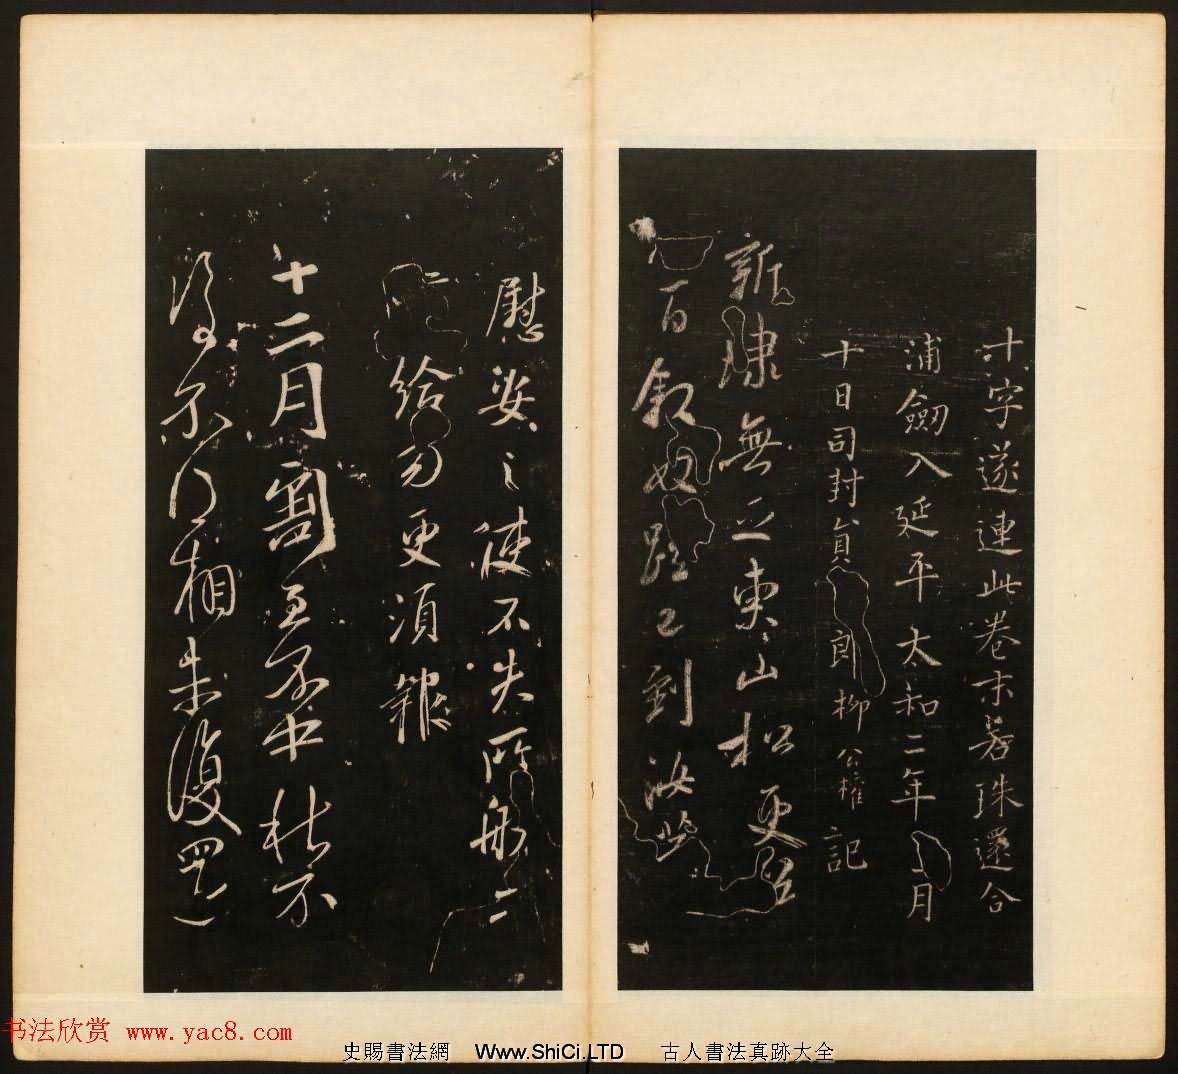 十字遂連此卷末若珠還合
浦劒入延平太和二年月
十日司封員郎柳公權記
新埭無乏東山松更送
百叙奴殷已到汝
慰安之使不失所舩二
給勿更須報
十二月割至不中秋不
復不得相未復
书法欣赏 www.yac8.com
史賜書法網 Www.ShiCi.LTD 古人書法真跡大全